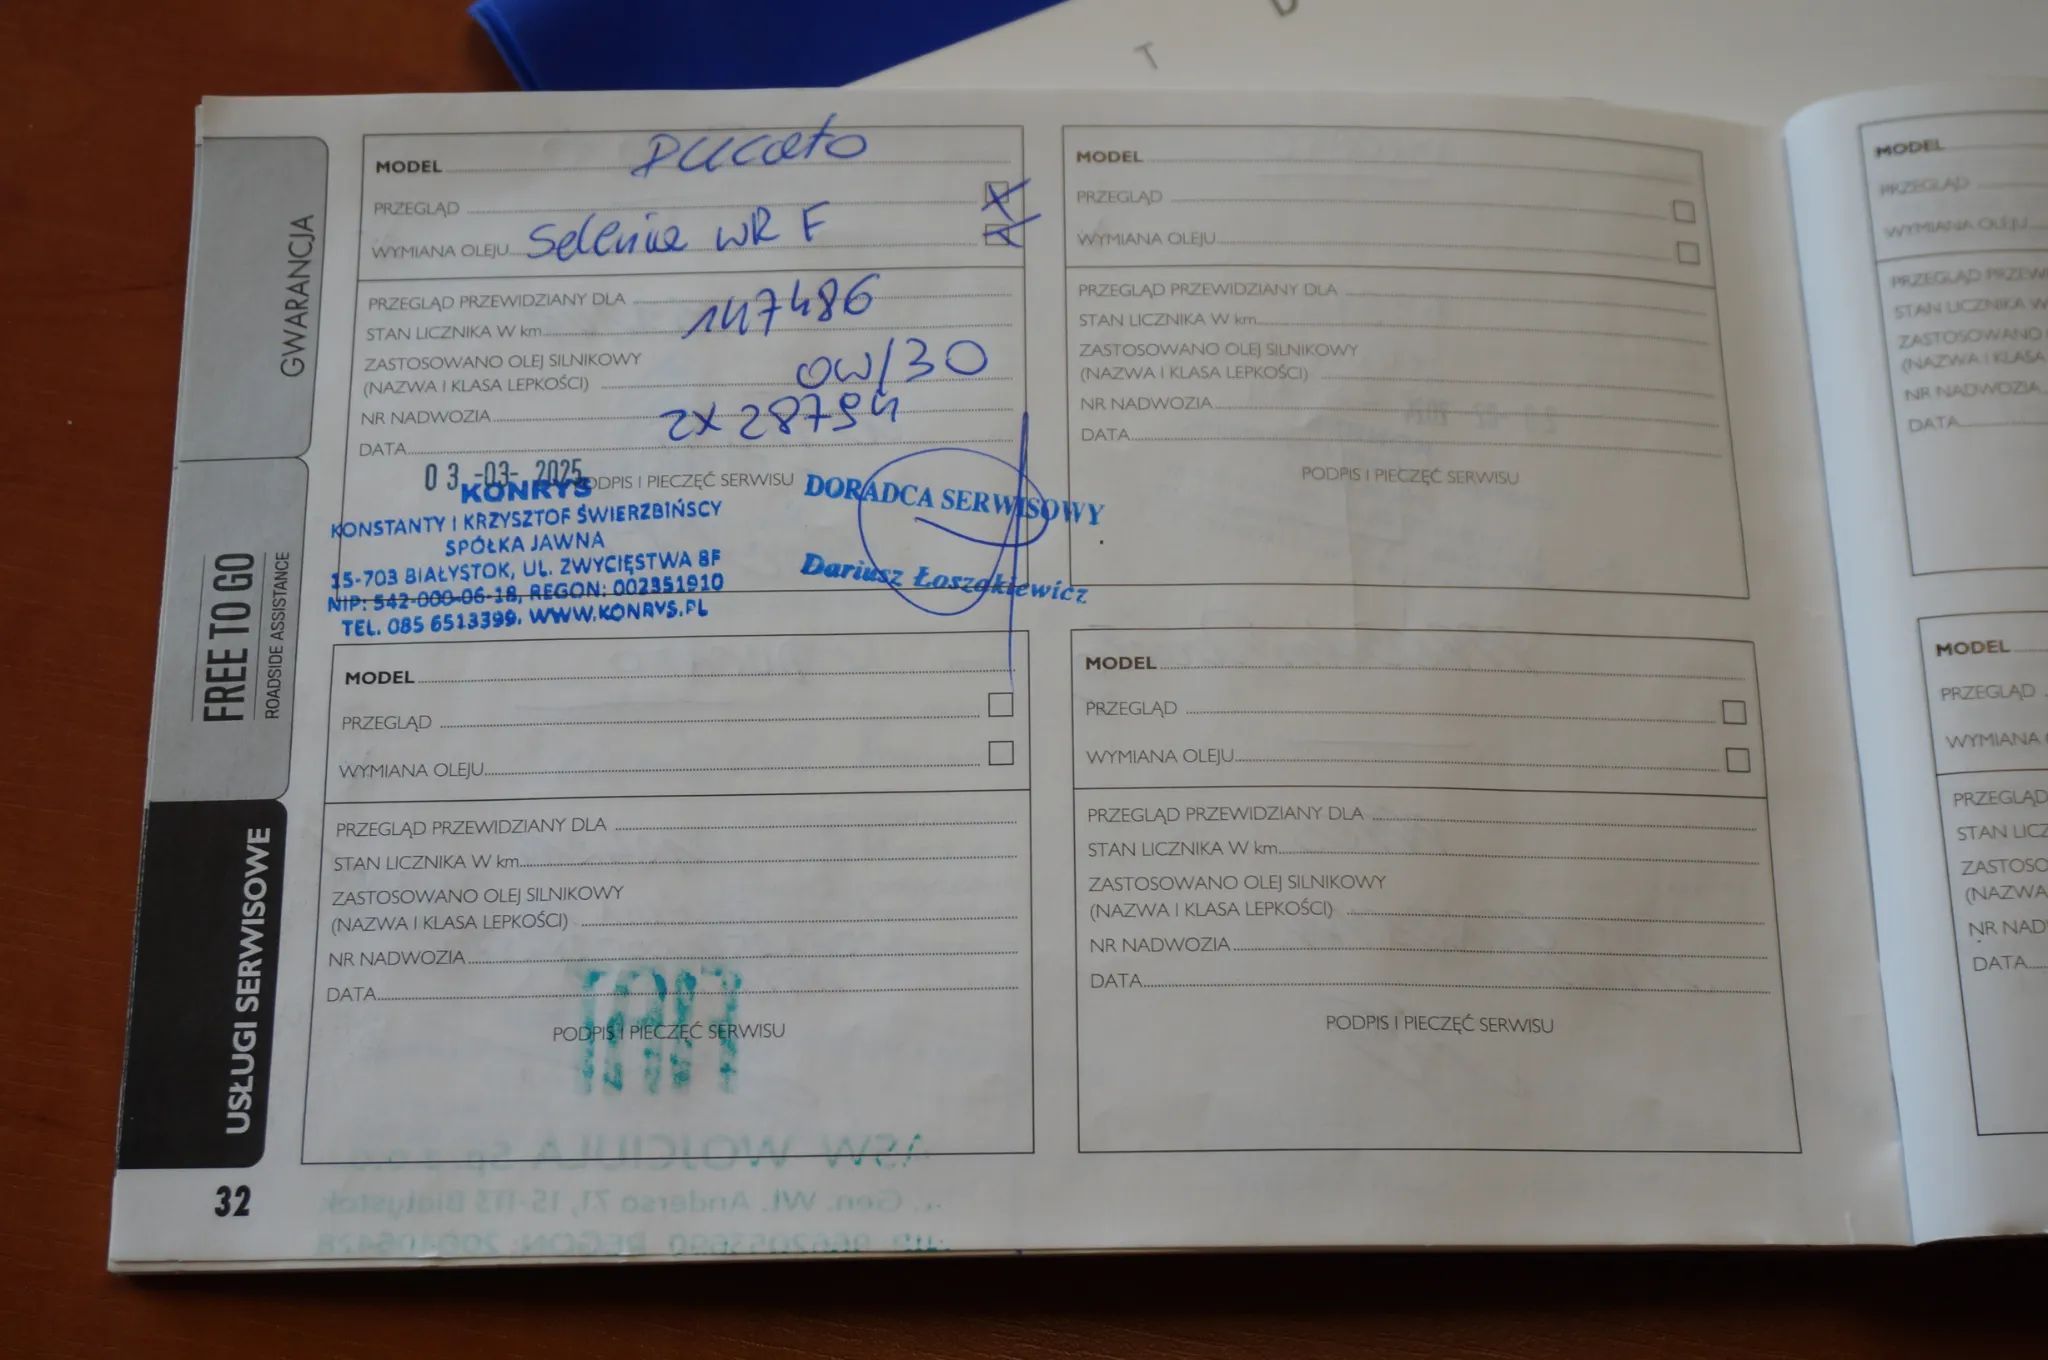 T
GWARANCJA
FREE TO GO
ROADSIDE ASSISTANCE
USŁUGI SERWISOWE
32
MODEL Ducato
PRZEGLĄD
WYMIANA OLEJU Selenia WR F
PRZEGLĄD PRZEWIDZIANY DLA
STAN LICZNIKA W km 147486
ZASTOSOWANO OLEJ SILNIKOWY
(NAZWA I KLASA LEPKOŚCI) 0W/30
NR NADWOZIA 2X28794
DATA
03-03-2025
PODPIS I PIECZĘĆ SERWISU
KONRYS
KONSTANTY I KRZYSZTOF ŚWIERZBIŃSCY
SPÓŁKA JAWNA
15-703 BIAŁYSTOK, UL. ZWYCIĘSTWA 8F
NIP: 542-000-06-18, REGON: 002351910
TEL. 085 6513399. WWW.KONRYS.PL
DORADCA SERWISOWY
Dariusz Łoszakiewicz
MODEL
PRZEGLĄD
WYMIANA OLEJU
PRZEGLĄD PRZEWIDZIANY DLA
STAN LICZNIKA W km
ZASTOSOWANO OLEJ SILNIKOWY
(NAZWA I KLASA LEPKOŚCI)
NR NADWOZIA
DATA
PODPIS I PIECZĘĆ SERWISU
MODEL
PRZEGLĄD
WYMIANA OLEJU
PRZEGLĄD PRZEWIDZIANY DLA
STAN LICZNIKA W km
ZASTOSOWANO OLEJ SILNIKOWY
(NAZWA I KLASA LEPKOŚCI)
NR NADWOZIA
DATA
PODPIS I PIECZĘĆ SERWISU
FIAT
ASW WOJCIULA Sp. z o.o.
Gen. Wł. Andersa 71, 15-113 Białystok
MODEL
PRZEGLĄD
WYMIANA OLEJU
PRZEGLĄD PRZEWIDZIANY DLA
STAN LICZNIKA W km
ZASTOSOWANO OLEJ SILNIKOWY
(NAZWA I KLASA LEPKOŚCI)
NR NADWOZIA
DATA
PODPIS I PIECZĘĆ SERWISU
MODEL
PRZEGLĄD
WYMIANA OLEJU
PRZEGLĄD PRZEW
STAN LICZNIKA W
ZASTOSOWANO
(NAZWA I KLASA
NR NADWOZIA
DATA
MODEL
PRZEGLĄD
WYMIANA
PRZEGLĄD
STAN LICZ
ZASTOSO
(NAZWA
NR NAD
DATA